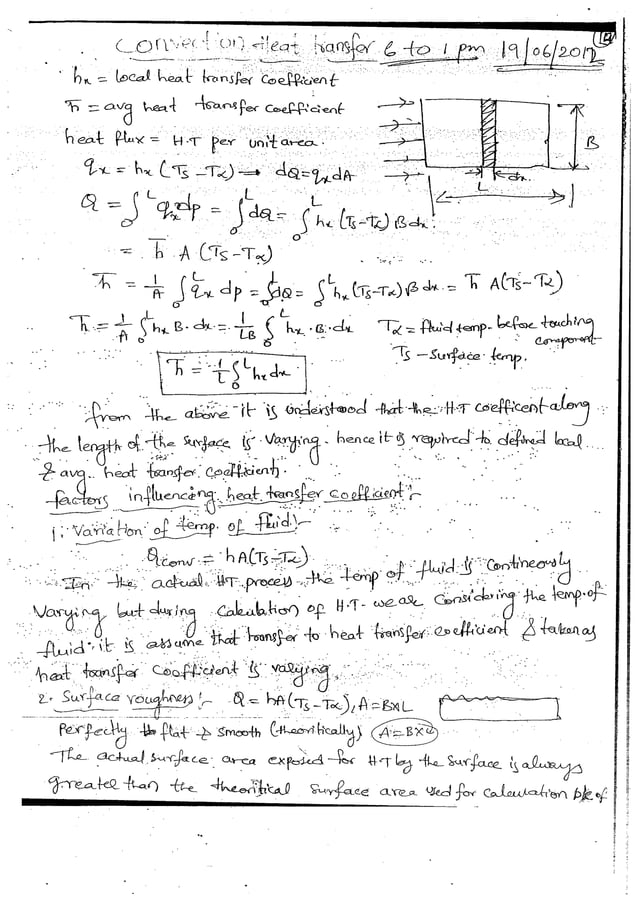 Convection Heat transfer 6 to 1 pm 19/06/2012
hx = local heat transfer coefficient
h̄ = avg heat transfer coefficient
heat flux = H.T per unit area.
qx = hx (Ts – Tα) → dQ = qx dA
B
L
dx.
Q = ∫₀ᴸ qx dp = ∫₀ᴸ dQ = ∫₀ᴸ hx (Ts-Tα) B dx.
= h̄ A (Ts – Tα)
h̄ = 1/A ∫₀ᴸ qx dp = ∫₀ᴸ dQ = ∫₀ᴸ hx (Ts-Tα) B dx = h̄ A(Ts-Tα)
h̄ = 1/A ∫₀ᴸ hx B. dx = 1/LB ∫₀ᴸ hx . B. dx Tα = fluid temp. before touching component
Ts – Surface temp.
h̄ = 1/L ∫₀ᴸ hx dx
from the above it is understood that the H.T coefficent along
the length of the surface is varying. hence it is required to defined local
& avg. heat transfer coefficient.
factors influencing heat transfer coefficient:-
1. Variation of temp. of fluid:-
Qconv = hA(Ts-Tα)
In the actual HT process the temp of fluid is contineously
varying but during calculation of H.T. we are considering the temp. of
fluid. it is assume that transfer to heat transfer coefficient & taken as
heat transfer coefficient is varying.
2. Surface roughness:- Q = hA(Ts-Tα), A=B×L
Perfectly flat & smooth (theoritically) A=B×L
The actual surface area exposed for HT by the surface is always
greater than the theoritical surface area used for calculation b/c of